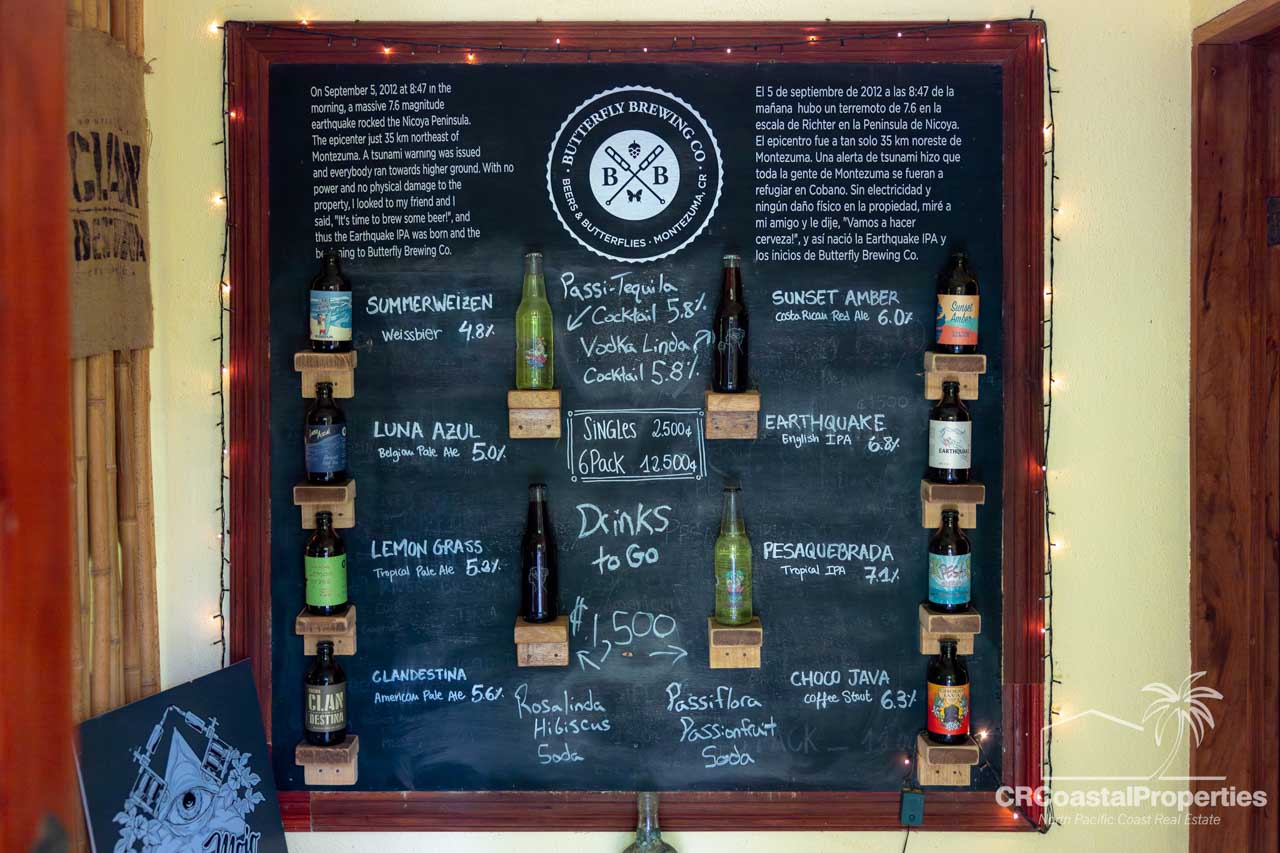 On September 5, 2012 at 8:47 in the
morning, a massive 7.6 magnitude
earthquake rocked the Nicoya Peninsula.
The epicenter just 35 km northeast of
Montezuma. A tsunami warning was issued
and everybody ran towards higher ground. With no
power and no physical damage to the
property, I looked to my friend and I
said, "It's time to brew some beer!", and
thus the Earthquake IPA was born and the
to Butterfly Brewing Co.
· BUTTERFLY BREWING CO ·
B B
BEERS & BUTTERFLIES · MONTEZUMA, CR
El 5 de septiembre de 2012 a las 8:47 de la
mañana hubo un terremoto de 7.6 en la
escala de Richter en la Península de Nicoya.
El epicentro fue a tan solo 35 km noreste de
Montezuma. Una alerta de tsunami hizo que
toda la gente de Montezuma se fueran a
refugiar en Cobano. Sin electricidad y
ningún daño físico en la propiedad, miré a
mi amigo y le dije, "Vamos a hacer
cerveza!", y así nació la Earthquake IPA y
los inicios de Butterfly Brewing Co.
SUMMERWEIZEN
Weissbier 4.8%
LUNA AZUL
Belgian Pale Ale 5.0%
LEMON GRASS
Tropical Pale Ale 5.2%
CLANDESTINA
American Pale Ale 5.6%
Passi-Tequila
Cocktail 5.8%
Vodka Linda
Cocktail 5.8%
SINGLES 2.500¢
6Pack 12.500¢
Drinks
to Go
₡1,500
Rosalinda
Hibiscus
Soda
Passiflora
Passionfruit
Soda
SUNSET AMBER
Costa Rican Red Ale 6.0%
EARTHQUAKE
English IPA 6.8%
PESAQUEBRADA
Tropical IPA 7.1%
CHOCO JAVA
Coffee Stout 6.3%
Sunset
Amber
EARTHQUAKE
CLAN
DESTINA
CLAN
CRCoastalProperties
North Pacific Coast Real Estate